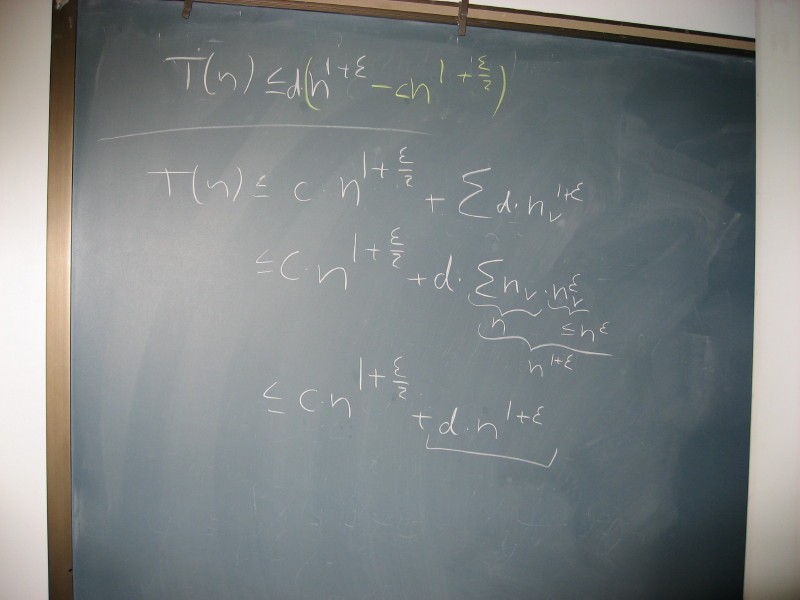 T(n) ≤ d(n^{1+ε} - cn^{1+ε/2})
T(n) ≤ c·n^{1+ε/2} + Σ d·n_v^{1+ε}
≤ c·n^{1+ε/2} + d·Σ n_v·n_v^ε
n ≤ n^ε
n^{1+ε}
≤ c·n^{1+ε/2} + d·n^{1+ε}